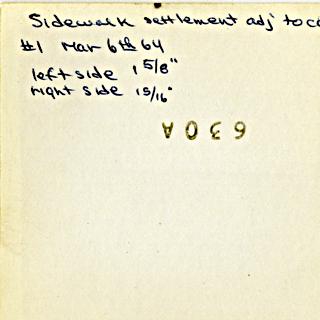 Sidewalk settlement adj to
#1 Mar 6th 64
left side 1 5/8"
right side 15/16"
630A